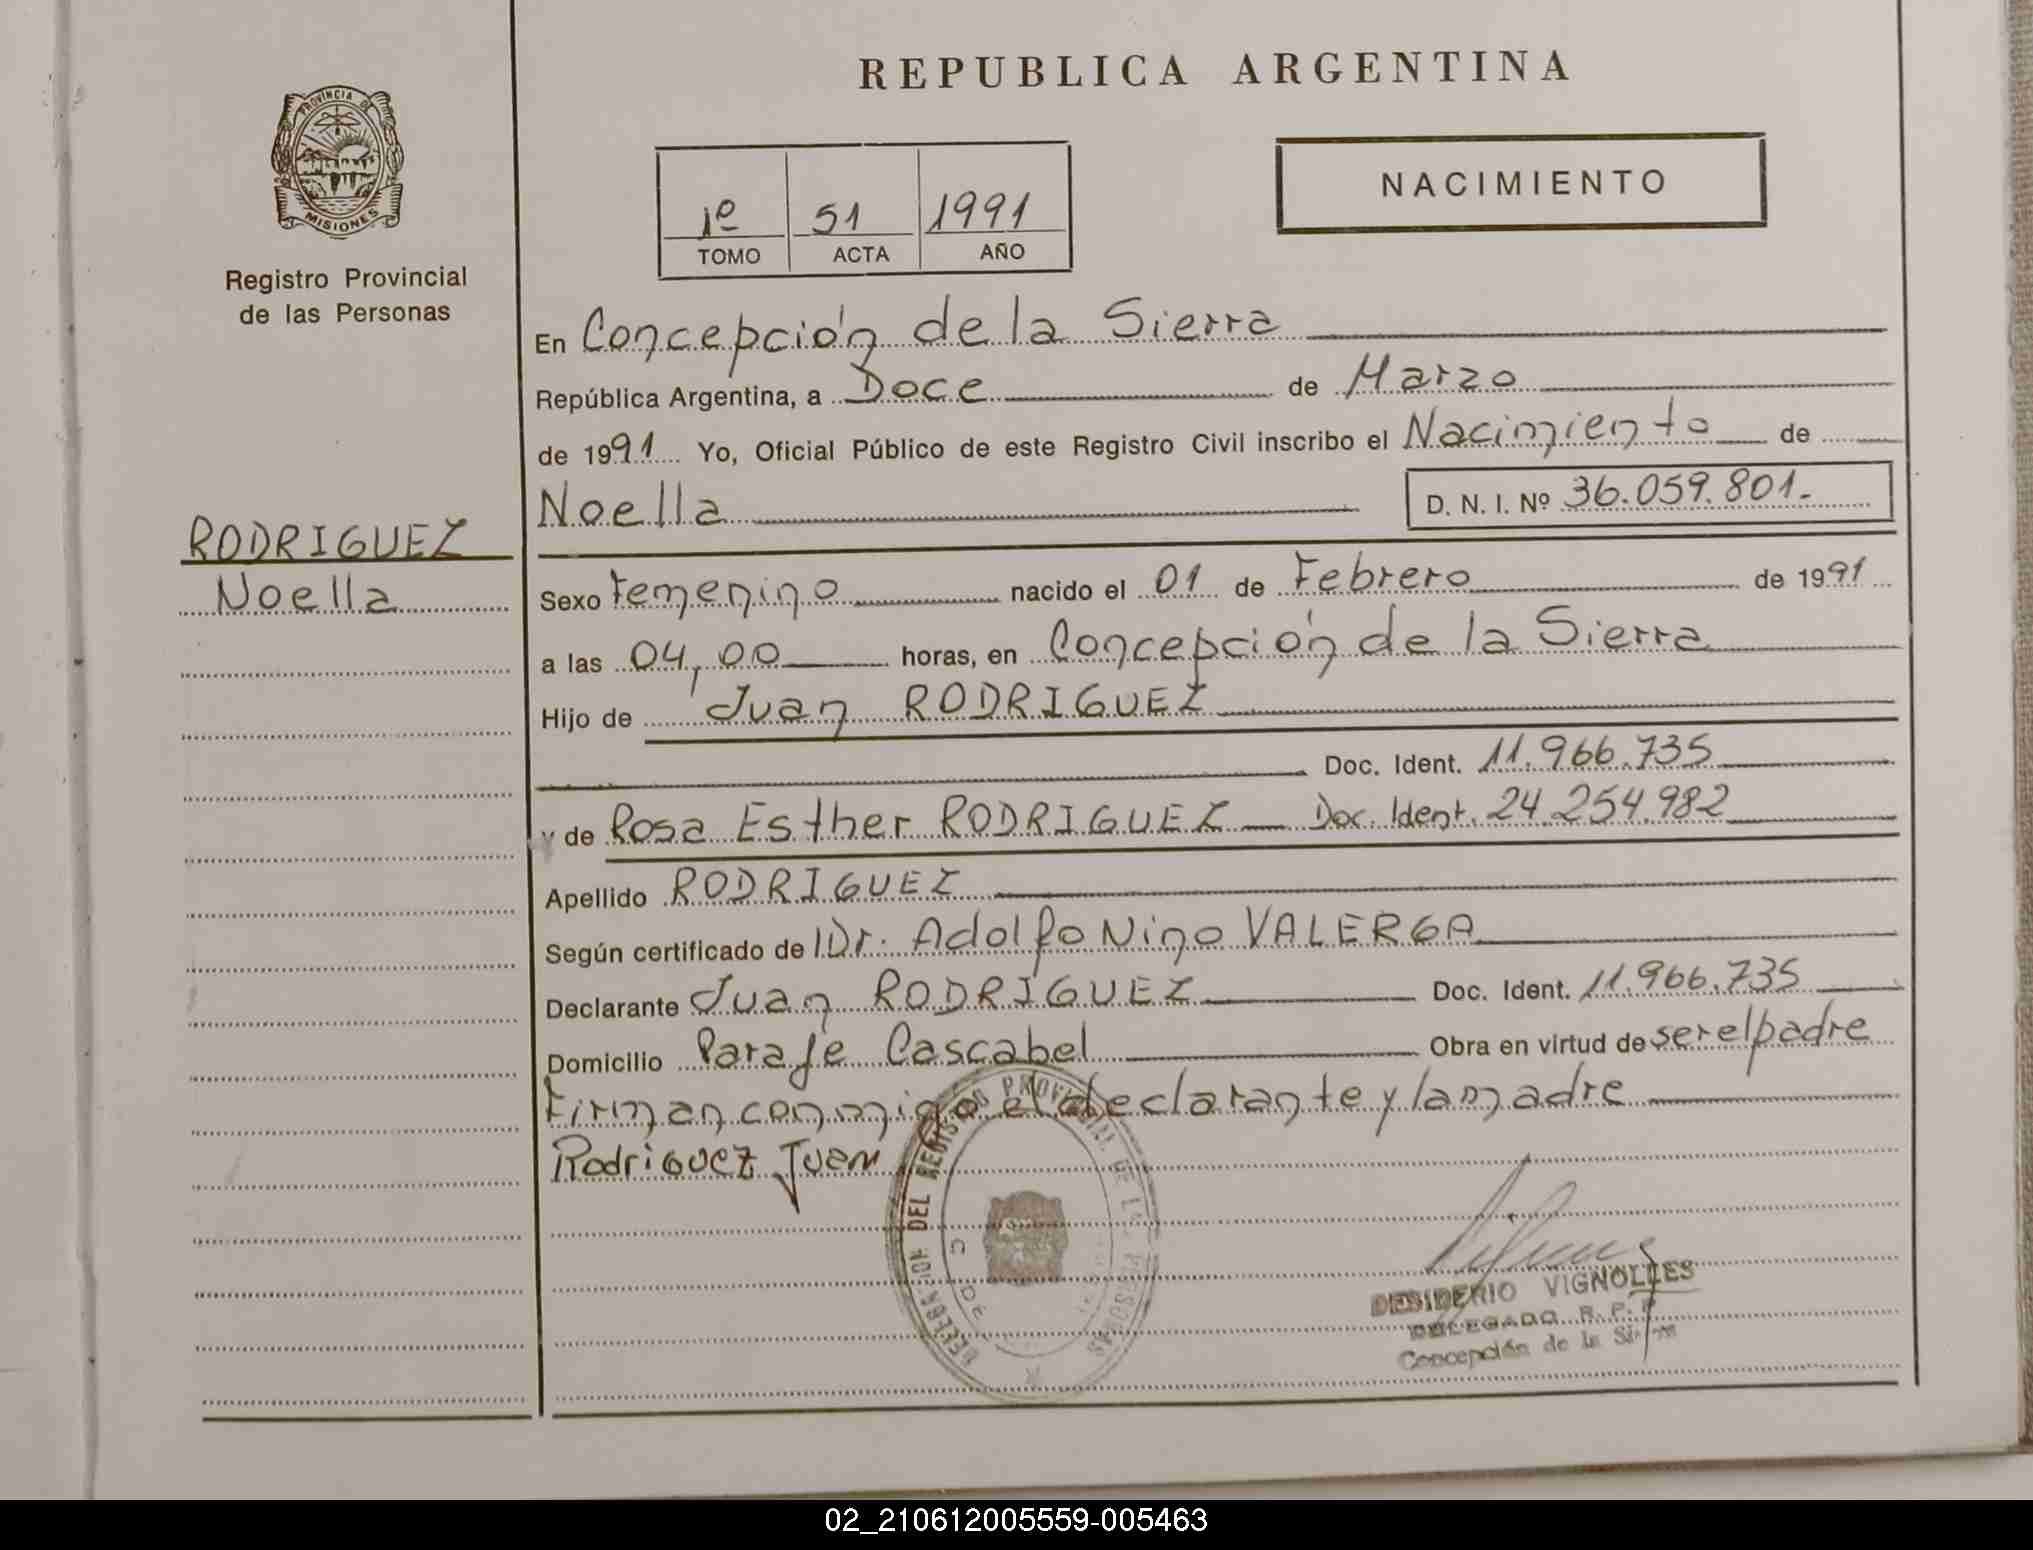 REPUBLICA ARGENTINA
PROVINCIA DE
MISIONES
Registro Provincial
de las Personas
1º 51 1991
TOMO ACTA AÑO
NACIMIENTO
RODRIGUEZ
Noella
En Concepción de la Sierra
República Argentina, a Doce de Marzo
de 1991 Yo, Oficial Público de este Registro Civil inscribo el Nacimiento de
Noella D. N. I. Nº 36.059.801.-
Sexo Femenino nacido el 01 de Febrero de 1991
a las 04,00 horas, en Concepción de la Sierra
Hijo de Juan RODRIGUEZ
Doc. Ident. 11.966.735
y de Rosa Esther RODRIGUEZ — Doc. Ident. 24.254.982
Apellido RODRIGUEZ
Según certificado de Dr. Adolfo Nino VALERGA
Declarante Juan RODRIGUEZ Doc. Ident. 11.966.735
Domicilio Paraje Cascabel Obra en virtud de ser el padre
Firman conmigo el declarante y la madre
Rodriguez Juan
DEL REGISTRO PROVINCIAL DE LAS PERSONAS
DESIDERIO VIGNOLLES
DELEGADO R. P. P.
Concepción de la Sierra
02_210612005559-005463